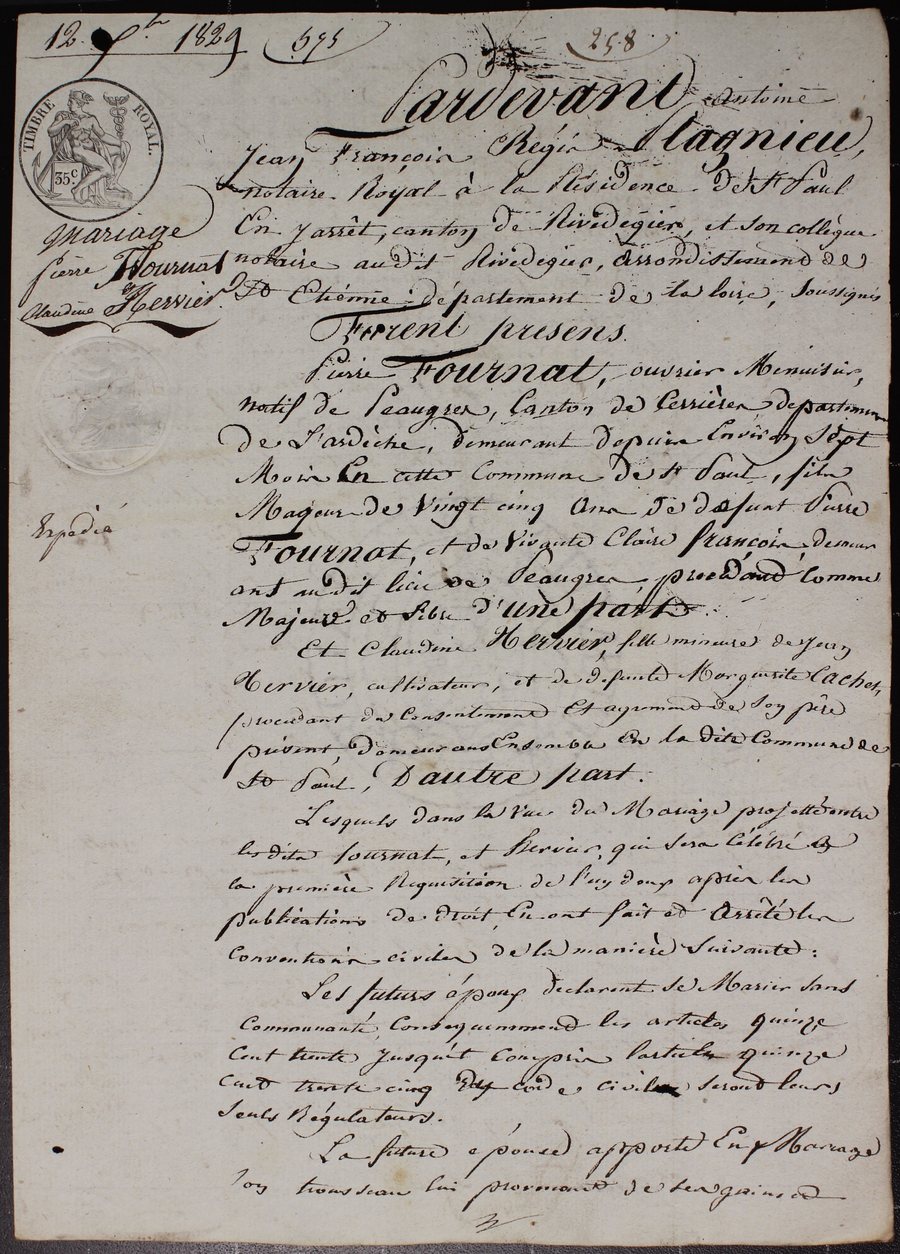 12 Xbre 1829
575
258
TIMBRE ROYAL.
35c
Mariage
pierre Fournat
et
Claudine Hervier
Expedié
Pardevant Antoine
Jean François Régis Flagnieu,
notaire Royal à la Résidence de St Paul
En Jarrêt, canton de Rivedegier, et son collègue
notaire audit Rivedegier, arrondissement de
St Etienne département de la loire, soussignés
Furent presens
Pierre Fournat, ouvrier Menuisier,
natif de Peaugres, Canton de Serrières departemen
de L'ardèche, demeurant depuis Environ Sept
Mois En cette Commune de St Paul, fils
Majeur de Vingt cinq Ans de defunt Pierre
Fournat, et de Vivante Claire françois demeur
ant audit lieu de Peaugres procedant Comme
Majeur et libre d'une part.
Et Claudine Hervier, fille mineure de Jean
Hervier, cultivateur, et de defunte Marguerite Cachet,
procedant du Consentement Et agrement de Son père
présent, demeurans Ensemble En la dite Commune de
St Paul, D'autre part.
Lesquels dans la Vue du Mariage projetté entre
les dits fournat, et Hervier, qui sera Célébré à
la première Requisition de l'un d'eux après les
publications de droit, En ont fait et Arrêté les
Conventions civiles de la manière Suivante:
Les futurs époux declarent se Marier sans
Communauté, Consequemment les articles quinze
Cent trente Jusqu'et Compris l'article quinze
Cent trente cinq du code civil seront leurs
seuls Régulateurs.
La future épouse apporte En Mariage
son trousseau lui provenant de ses gains et